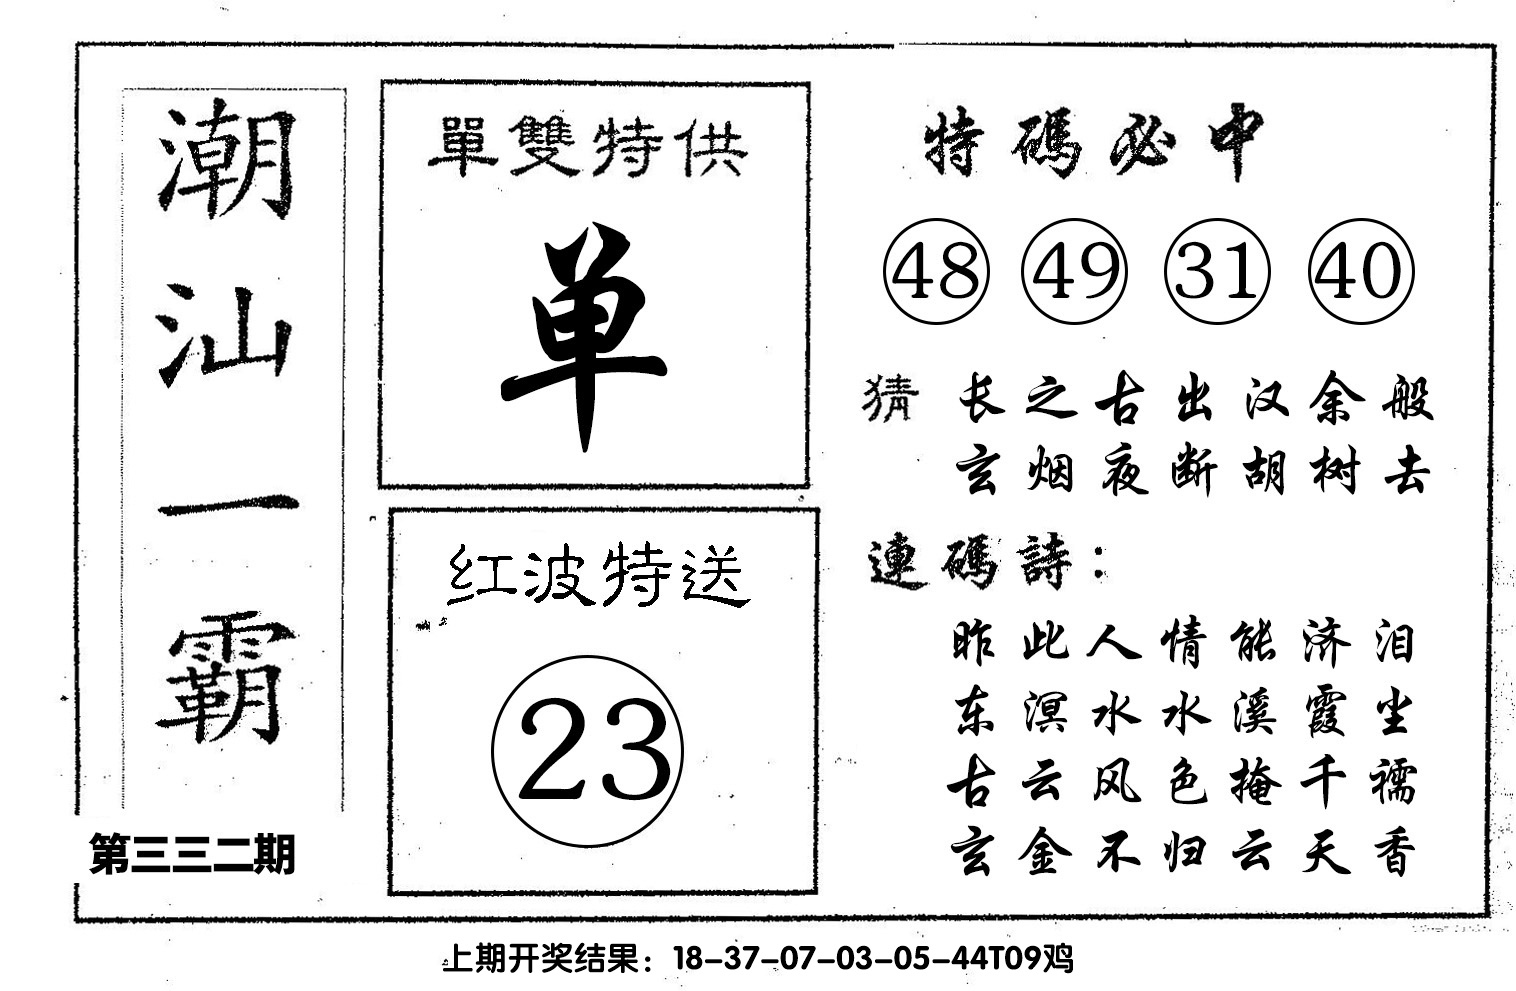 潮汕一霸
第三三二期
單雙特供
单
红波特送
23
特碼必中
48 49 31 40
猜 长之古出汉余般
玄烟夜断胡树去
連碼詩：
昨此人情能济泪
东溟水水溪霞尘
古云风色掩千襦
玄金不归云天香
上期开奖结果：18-37-07-03-05-44T09鸡